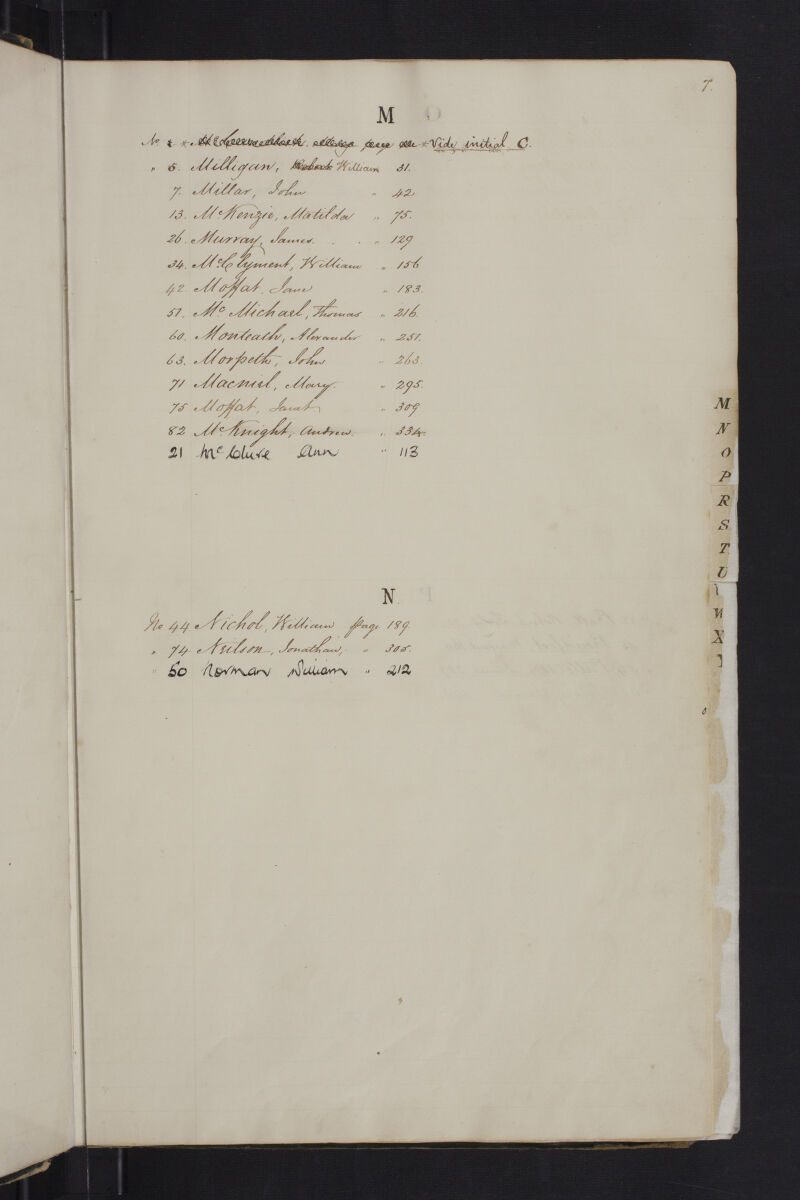 7.
M
No * Vide initial C.
" 5. Milligan, Robert William 31.
7. Millar, John " 42
13. McKenzie, Matilda " 75.
26. Murray, James . . " 129
34. McClyment, William " 156
42 Moffat. Jane " 183.
51. Mc Michael, Thomas " 216.
60. Monteath, Alexander " 251.
63. Morpeth, John " 263.
71 Macneil, Mary. " 295.
75 Moffat, Janet " 309
82 McKnight, Andrew. " 334.
21 McClure Ann " 113
N.
No 44 Nichol, William page 189.
" 74 Neilson, Jonathan, " 305.
" 50 Norman William " 212
M
N
O
P
R
S
T
U
W
X
Y